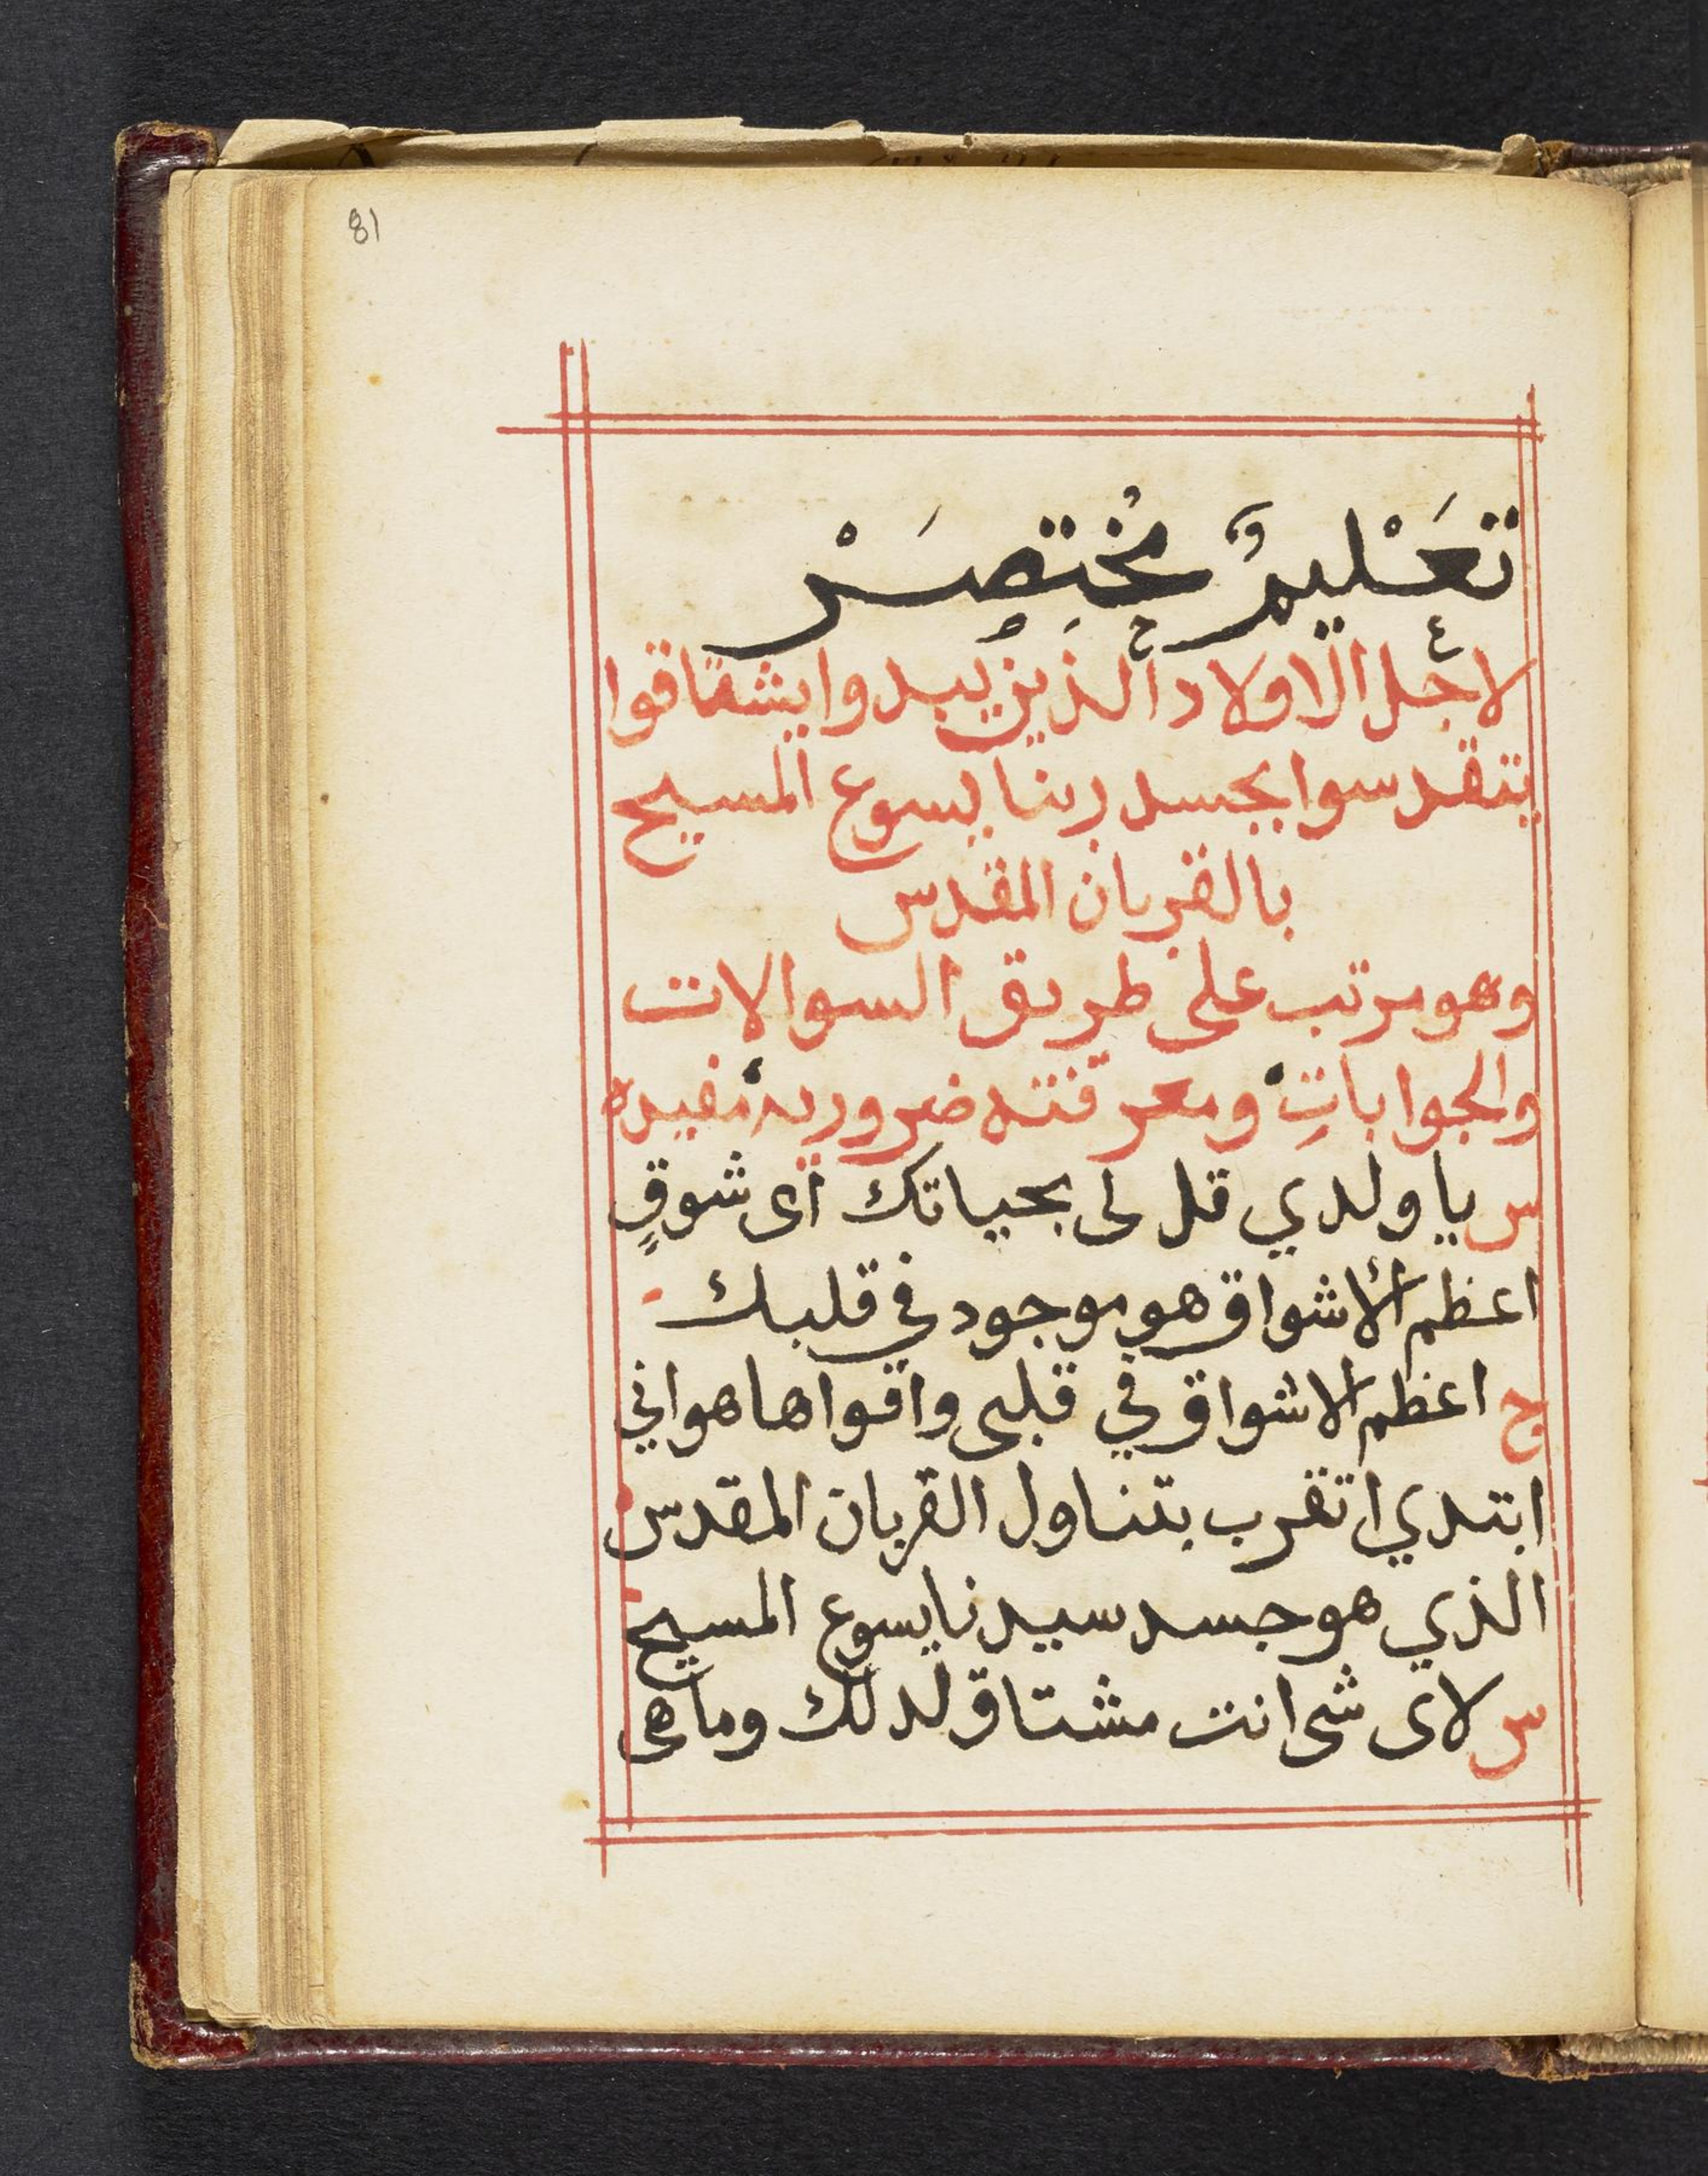 81
تَعَلِيمٌ مُخْتَصَرْ
لاجل الاولاد الذين يبدوا يشتاقوا
يتقدسوا بجسد ربنا يسوع المسيح
بالقربان المقدس
وهو مرتب على طريق السوالات
والجوابات ومعرفته ضروريه مفيده
س يا ولدي قل لى بحياتك اى شوقٍ
اعظم الاشواق هو موجود في قلبك
ج اعظم الاشواق في قلبى واقواها هو اني
ابتدي اتقرب بتناول القربان المقدس
الذي هو جسد سيدنا يسوع المسيح
س لاى شى انت مشتاق لدلك وما هى